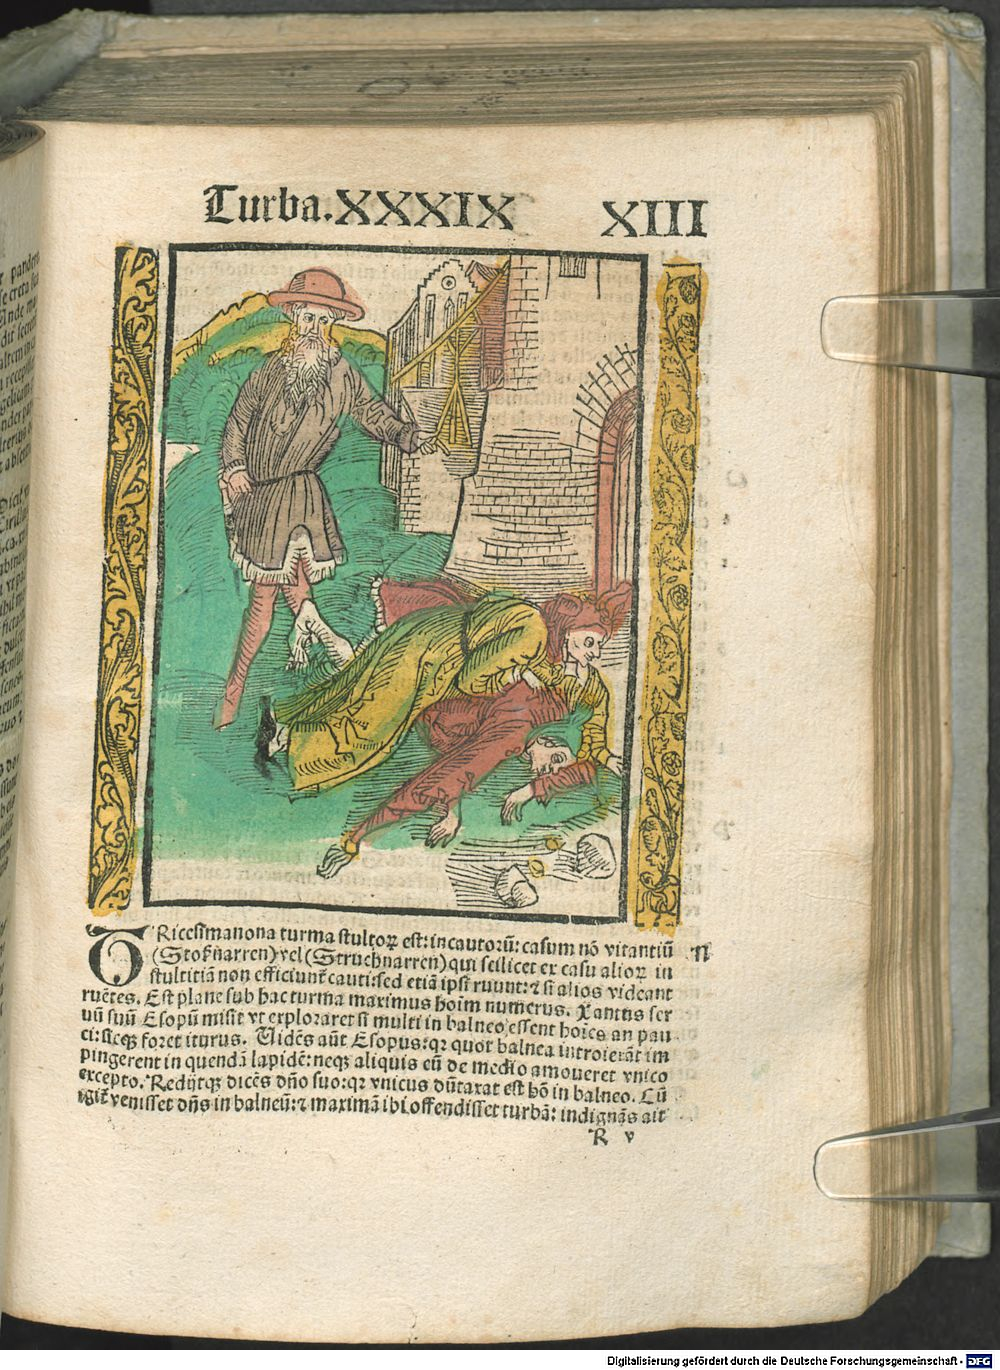 Turba.XXXIX XIII
TRicesimanona turma stultoꝝ est: incautorũ: casum nõ vitantiũ N
(Stokñarren) vel (Struchnarren) qui scilicet ex casu alioꝝ in
stultitiã non efficiunt̃ cauti: sed etiã ipsi ruunt: ⁊ si alios videant
ruẽtes. Est plane sub hac turma maximus hoĩm numerus. Xantus ser
uũ suũ Esopũ misit vt exploraret si multi in balneo essent hoĩes an pau
ci: sicqꝫ foret iturus. Uidẽs aũt Esopus: qꝛ quot balnea introierãt im
pingerent in quendã lapidẽ: neqꝫ aliquis eũ de medio amoueret vnico
excepto. Redijtqꝫ dicẽs dño suo: qꝛ vnicus dũtaxat est hõ in balneo. Cũ
igit̃ venisset dñs in balneũ: ⁊ maximã ibi offendisset turbã: indignãs ait
R v
Digitalisierung gefördert durch die Deutsche Forschungsgemeinschaft - DFG